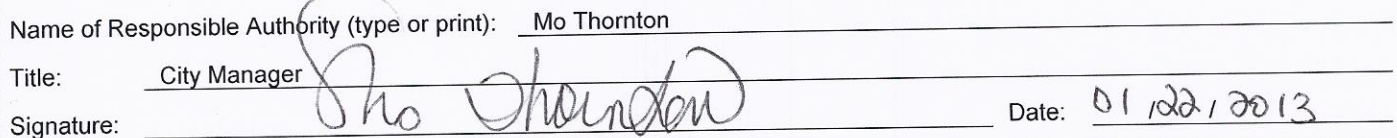 Name of Responsible Authority (type or print): Mo Thornton
Title: City Manager
Signature: Mo Thornton Date: 01/22/2013